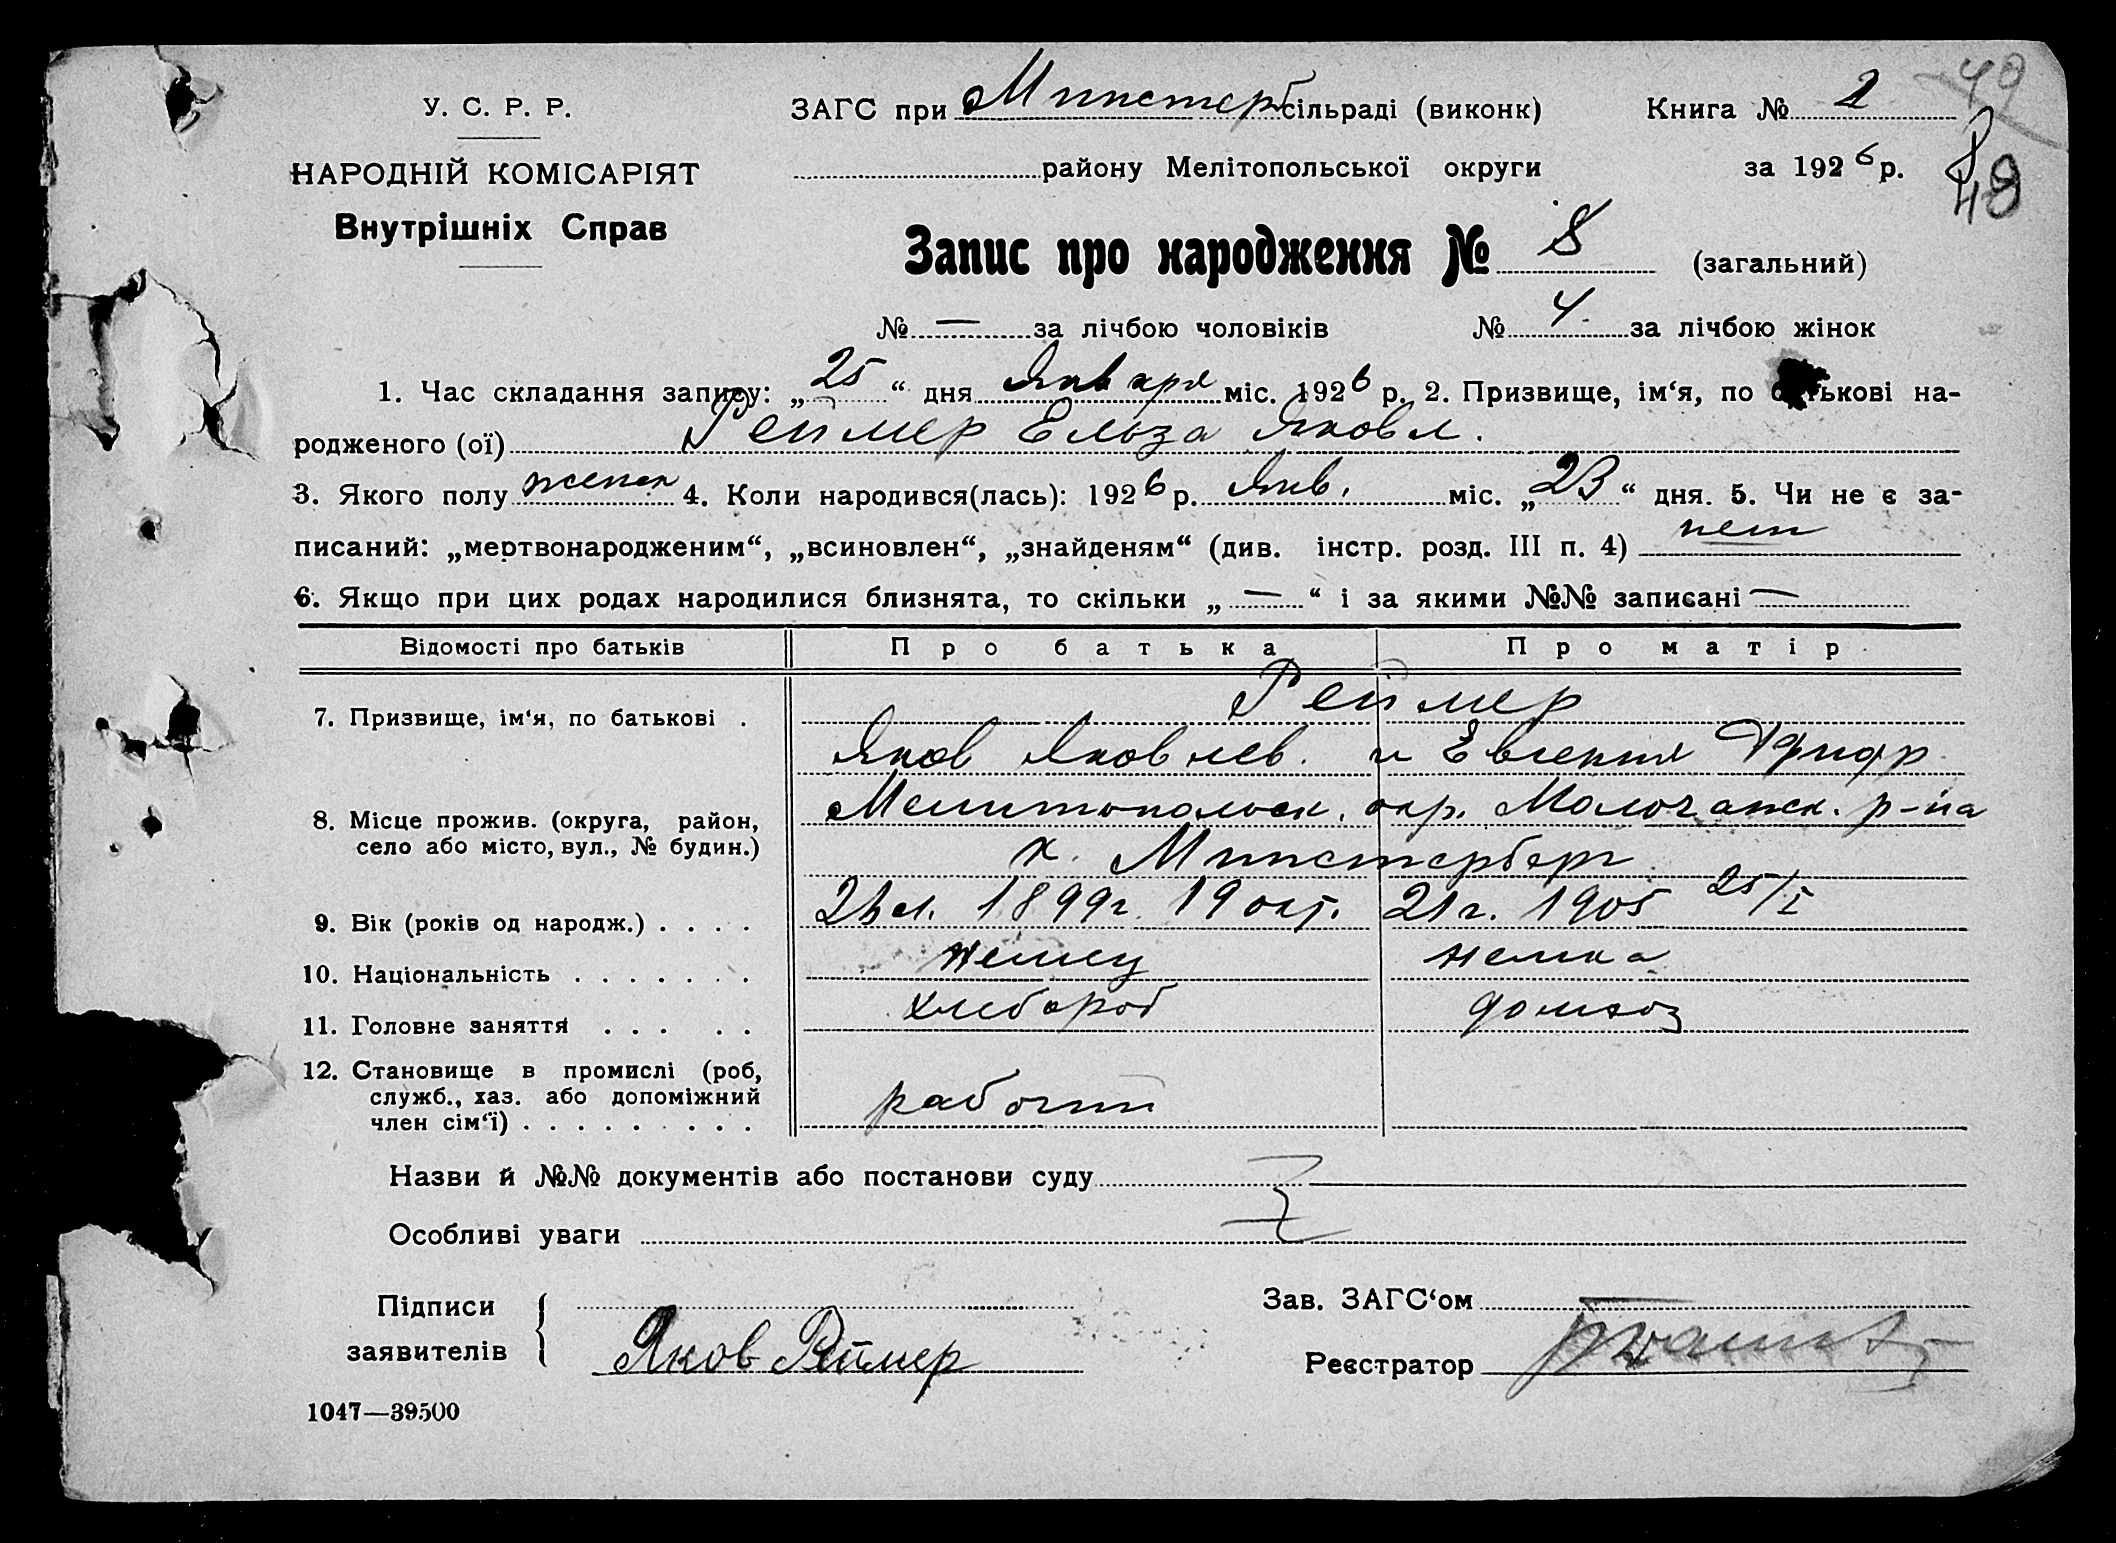 49
У. С. Р. Р.
ЗАГС при Мунстерб сільраді (виконк)
Книга № 2
НАРОДНІЙ КОМІСАРІЯТ
району Мелітопольської округи
за 1926 р.
8
49
Внутрішніх Справ
Запис про народження № 8 (загальний)
№ — за лічбою чоловіків № 4 за лічбою жінок
1. Час складання запису: „25“ дня Января міс. 1926 р. 2. Призвище, ім‘я, по батькові на-
родженого (ої) Реймер Ельза Яковл.
3. Якого полу женск 4. Коли народився(лась): 1926 р. Янв. міс. „23“ дня. 5. Чи не є за-
писаний: „мертвонародженим“, „всиновлен“, „знайденям“ (див. інстр. розд. III п. 4) нет
6. Якщо при цих родах народилися близнята, то скільки „—“ і за якими №№ записані —
Відомості про батьків Про батька Про матір
7. Призвище, ім‘я, по батькові . Реймер
Яков Яковлев. и Евгения
8. Місце прожив. (округа, район, Мелитопольск. окр. Молочанск. р-на
село або місто, вул., № будин.) к. Мунстерберг
9. Вік (років од народж.) . . . . 26 л. 1899 г. 19 окт. 21 г. 1905 25/I
10. Національність . . . . . . . немец немка
11. Головне заняття . . . . . хлебороб домхоз
12. Становище в промислі (роб,
служб., хаз. або допоміжний рабочий
член сім‘ї) . . . . . . . . .
Назви й №№ документів або постанови суду
Особливі уваги
Підписи
Зав. ЗАГС‘ом
заявителів Яков Реймер
Реєстратор
1047—39500